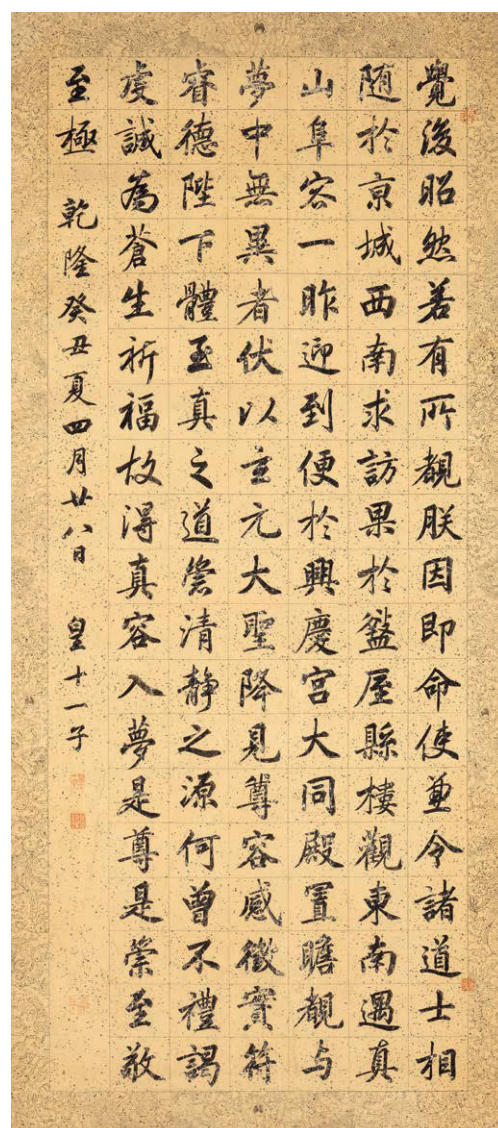 覺後昭然若有所覩朕因即命使兼令諸道士相
随於京城西南求訪果於盩厔縣樓觀東南遇真
山阜容一昨迎到便於興慶宮大同殿置瞻覩与
夢中無異者伏以玄元大聖降見尊容感徵實符
睿德陛下體至真之道崇清靜之源何曾不禮謁
虔誠為蒼生祈福故得真容入夢是尊是崇至敬
至極 乾隆癸丑夏四月廿八日 皇十一子